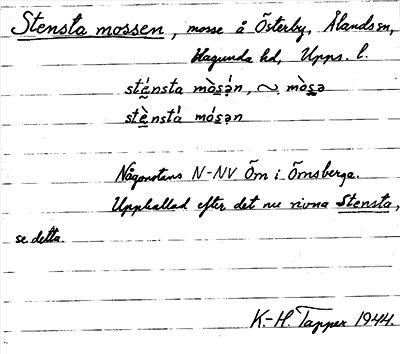 Stensta mossen, mosse å Österby, Ålands sn,
Hagunda hd, Upps. l.
sté̱nsta mò̱sə̀n, ~ mò̱sə
stè̱nstá mó̱sən
Någonstans N-NV Örn i Örnsberga.
Uppkallad efter det nu rivna Stensta,
se detta.
K.-H. Tapper 1944.